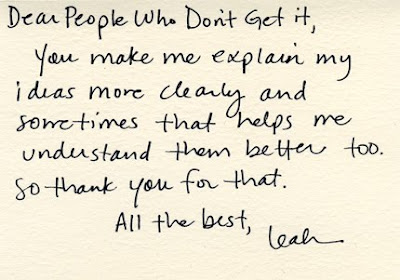 Dear People Who Don't Get it,
You make me explain my
ideas more clearly and
sometimes that helps me
understand them better too.
So thank you for that.
All the best,
Leah